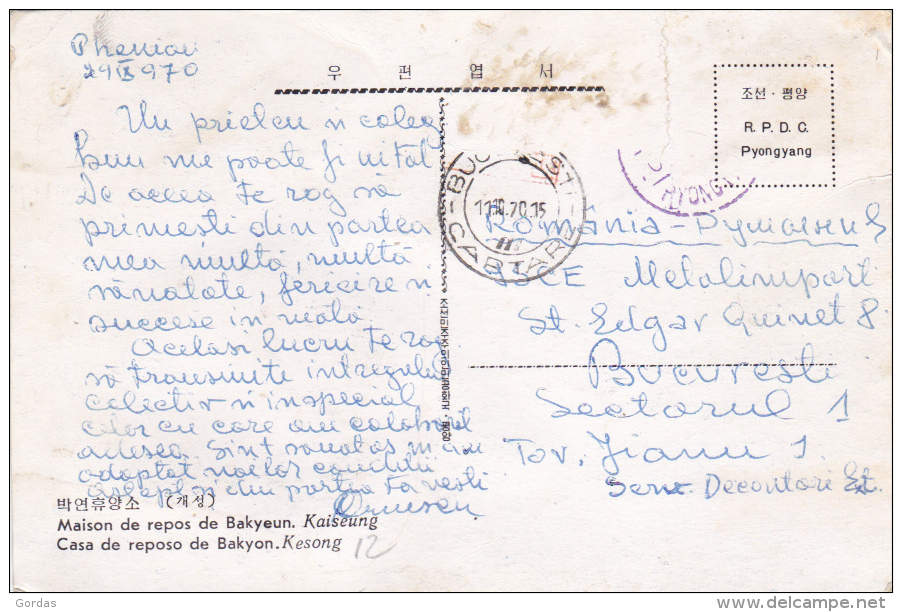 Phenian
29 IX 970
우 편 엽 서
조선 · 평양
R. P. D. C.
Pyongyang
Un prieten și coleg
bun nu poate fi uitat
De aceea te rog să
primești din partea
mea multă, multă
sănătate, fericire și
succese în viață
Același lucru te rog
să transmite întregului
colectiv și în special
celor cu care am colaborat
adesea. Sînt sănătos, m-am
adaptat noilor condiții
aștept și din partea ta vești
BUC
11.10.70.15
CARTARE
PYONGY
România - Румыния
ICE Metalimport
St. Edgar Quinet 8
București
Sectorul 1
Tov. Jianu I.
Serv. Decontări Ext.
박연휴양소 (개성)
Maison de repos de Bakyeun. Kaiseung
Casa de reposo de Bakyon. Kesong
12
Gordas
delcampe.net